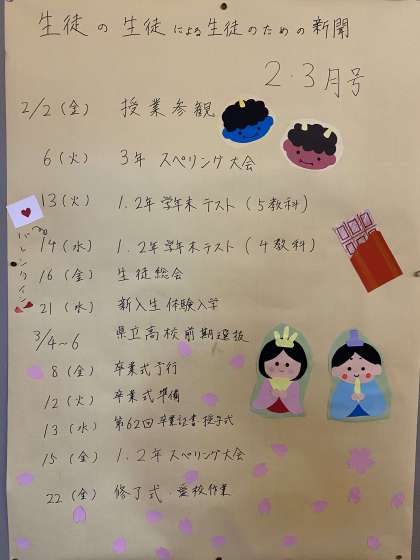 生徒の生徒による生徒のための新聞
2・3月号
2/2(金) 授業参観
6(火) 3年 スペリング大会
13(火) 1.2年学年末テスト(5教科)
バレンタイン
14(水) 1.2年学年末テスト(4教科)
16(金) 生徒総会
21(水) 新入生体験入学
3/4~6 県立高校前期選抜
8(金) 卒業式予行
12(火) 卒業式準備
13(水) 第62回卒業証書授与式
15(金) 1.2年スペリング大会
22(金) 修了式・愛校作業